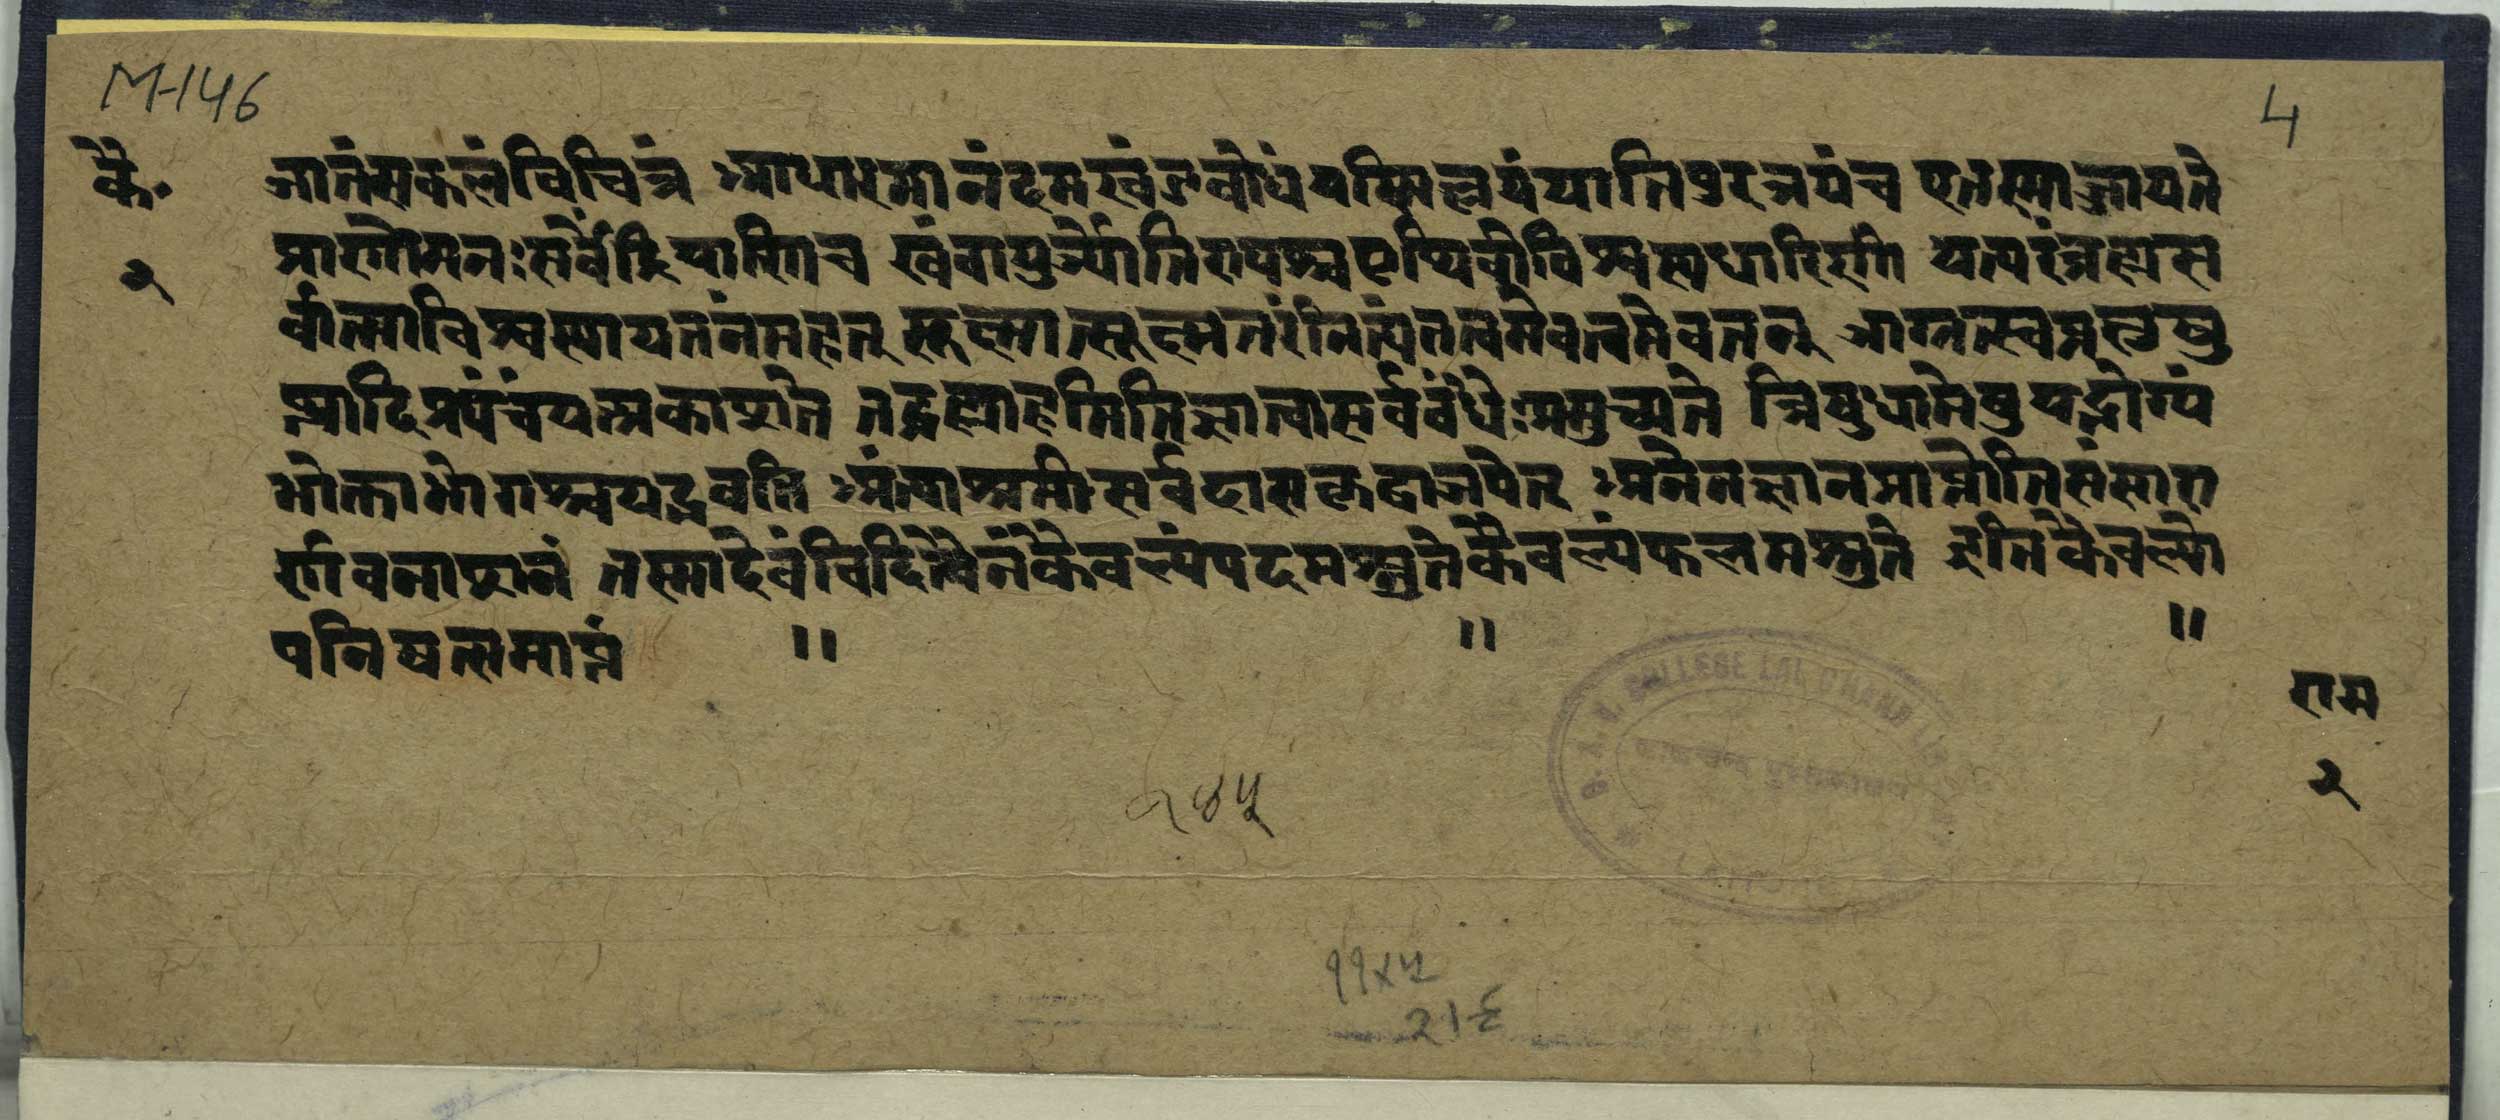 M-146
4
कै॰
२
जातंसकलंविचित्रं आधारमानंदमखंडबोधंयस्मिंल्लयंयातिपुरत्रयंच एतस्माज्जायते
प्राणोमनःसर्वेंद्रियाणिच खंवायुर्ज्योतिरापश्चपृथिवीविश्वस्यधारिणी यत्परंब्रह्मस
र्वात्माविश्वस्यायतनंमहत् सूक्ष्मात्सूक्ष्मतरंनित्यंतत्वमेवत्वमेवतत् जाग्रत्स्वप्नसुषु
प्त्यादिप्रपंचंयत्प्रकाशते तद्ब्रह्माहमितिज्ञात्वासर्वबंधैःप्रमुच्यते त्रिषुधामेषुयद्भोग्यं
भोक्ताभोगश्चयद्भवेति अंत्याश्रमीसर्वदासकृद्वाजपेत् अनेनज्ञानमाप्नोतिसंसारा
र्णवनाशनं तस्मादेवंविदित्वैनंकैवल्यंपदमश्नुतेकैवल्यंफलमश्नुते इतिकैवल्यो
पनिषत्समाप्तं ॥ ॥ ॥
राम
२
D. A. V. COLLEGE LAL CHAND
लालचन्द पुस्तकालय
LAHORE
२४५
११x५
२।६